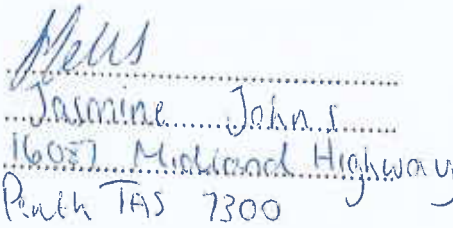 Jasmine Johns
16087 Midland Highway
Perth TAS 7300